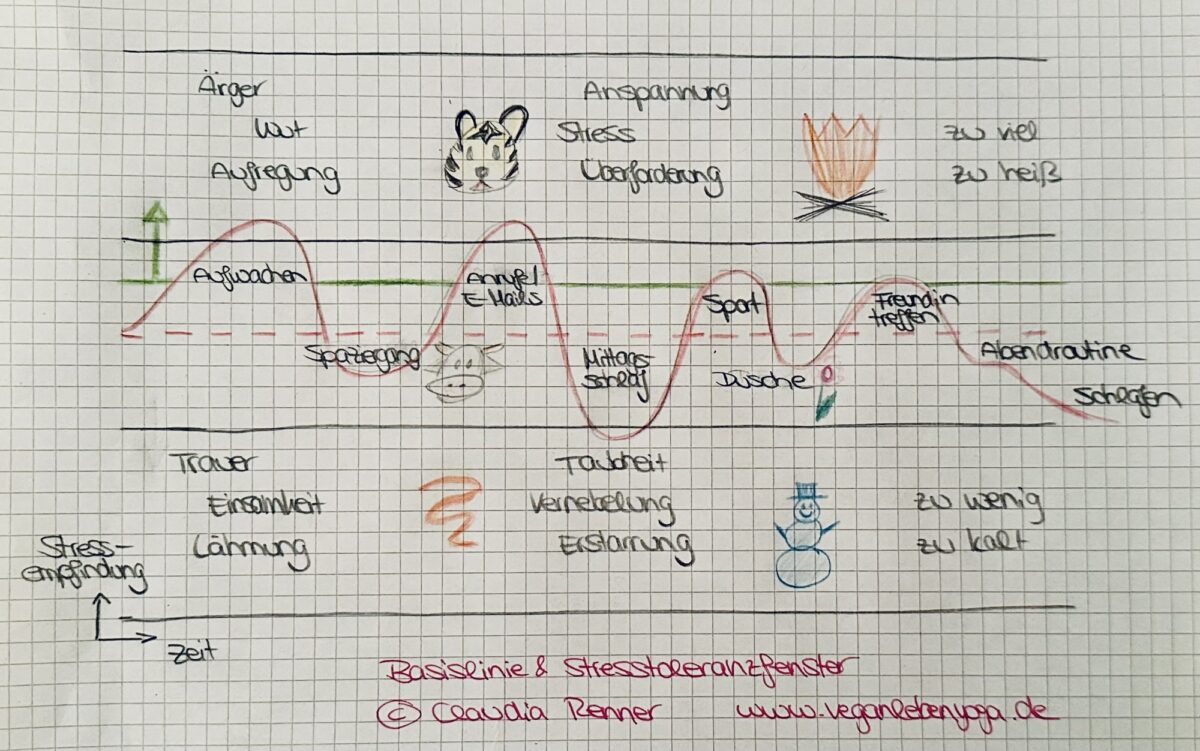 Ärger
Anspannung
Wut
Stress
zu viel
Aufregung
Überforderung
zu heiß
Aufwachen
Anrufe/
E-Mails
Sport
Freundin
treffen
Spaziergang
Mittags-
schlaf
Dusche
Abendroutine
Schlafen
Trauer
Taubheit
Einsamkeit
Vernebelung
zu wenig
Lähmung
Erstarrung
zu kalt
Stress-
empfindung
Zeit
Basislinie & Stresstoleranzfenster
© Claudia Renner www.veganlebenyoga.de